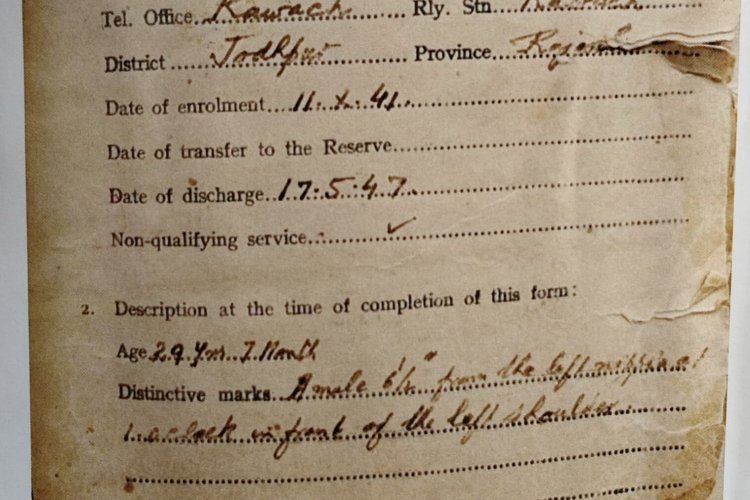 Tel. Office Kawach Rly. Stn.
District Jodhpur Province
Date of enrolment 11.X.41.
Date of transfer to the Reserve
Date of discharge 17.5.47.
Non-qualifying service ✓
2. Description at the time of completion of this form:
Age 29 Yrs. 7 Month
Distinctive marks A mole 6½" from the left nipple at
1. oclock in front of the left shoulder.